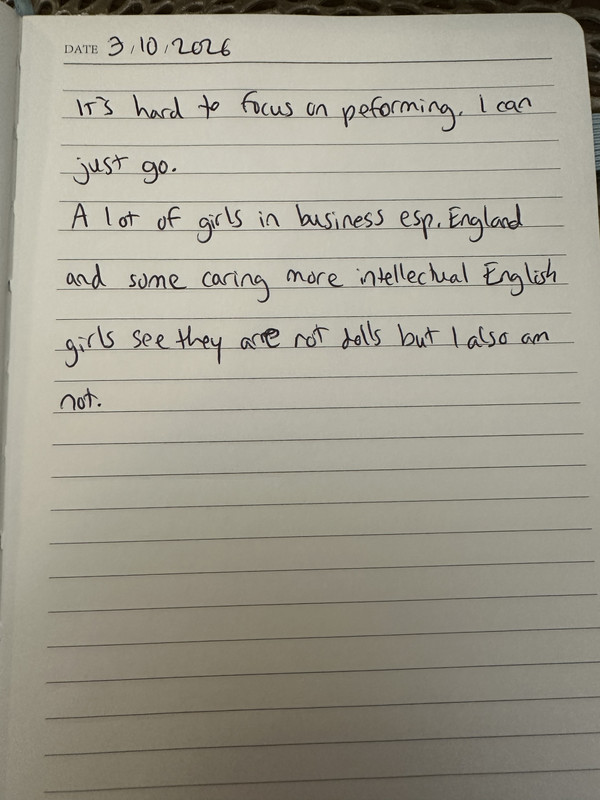 DATE 3/10/2026
It's hard to focus on peforming. I can
just go.
A lot of girls in business esp. England
and some caring more intellectual English
girls see they are not dolls but I also am
not.